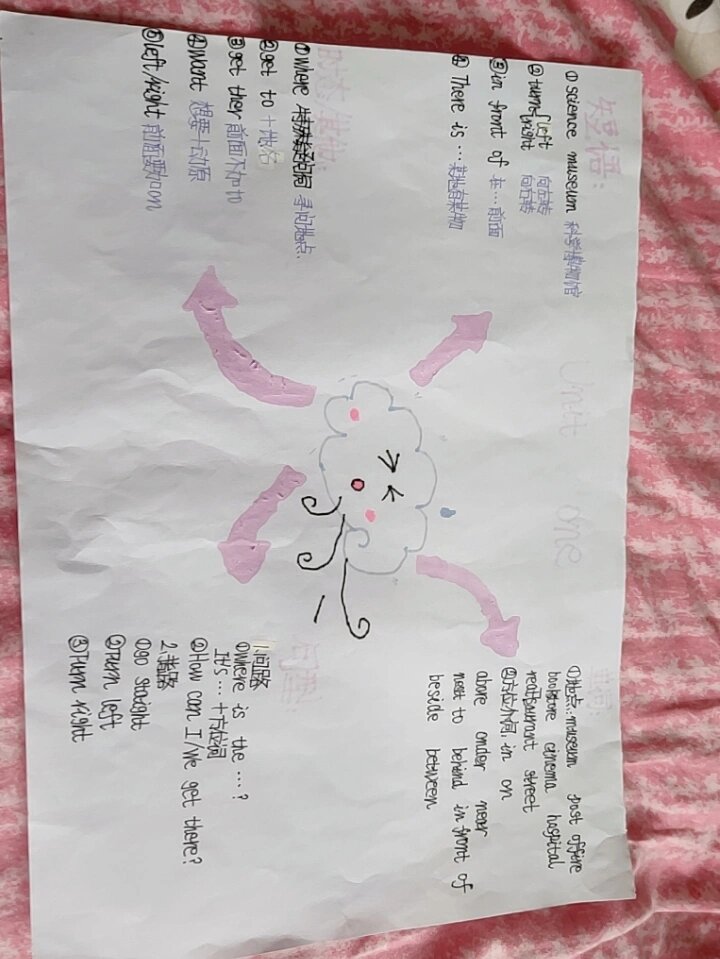 Unit one
短语:
①science museum 科学博物馆
②turn left 向左转
right 向右转
③in front of 在…前面
④There is … 某地有某物
单词:
①地点: museum post office
bookstore cinema hospital
reatsaurant street
②方位介词, in on
above onder near
next to behind in front of
beside between
①where 特殊疑问词 寻问地点.
②get to +地名
③get they 前面不加to
④want 想要+to动原
⑤left/right 前面要加on
句型:
1.问路
①where is the …?
It's … +方位词
②How can I/We get there?
2.指路
①go staight
②Turn left
③Turn right